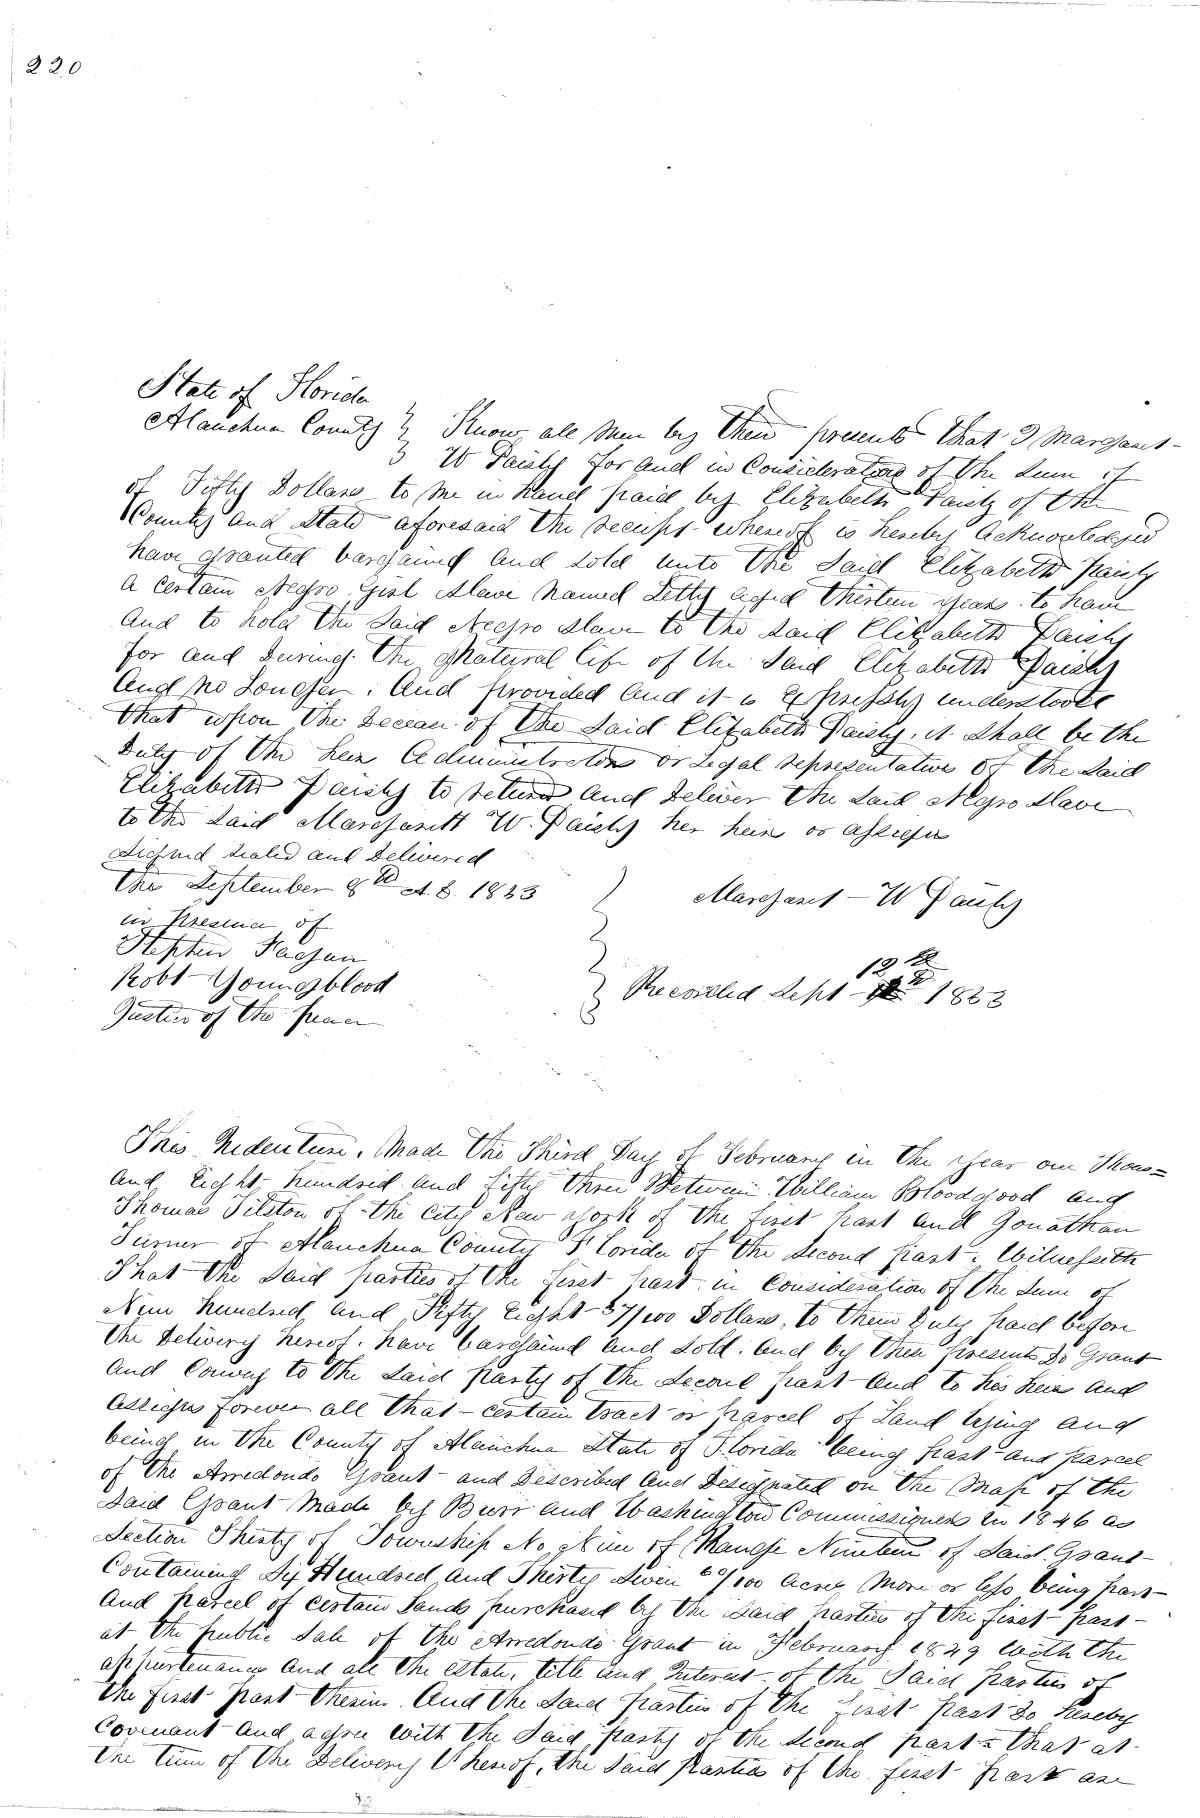 220
State of Florida
Alauchua County } Know all Men by these presents that I Margaret
W Paisly for and in Consideration of the Sum of
of Fifty Dollars to me in hand paid by Elizabeth Paisly of the
County and State aforesaid the receipt whereof is hereby acknowledged
have granted bargained and sold unto the Said Elizabeth Paisly
a certain Negro Girl Slave Named Letty aged thirteen years. to have
and to hold the Said Negro Slave to the said Elizabeth Paisly
for and During the Natural life of the Said Elizabeth Paisly
And No Longer. And provided and it is Expressly understood
that upon the Decease of the Said Elizabeth Paisly, it Shall be the
Duty of the heir Administrators or Legal representatives of the Said
Elizabeth Paisly to return and Deliver the Said Negro Slave
to the Said Margarett W. Paisly her heir or assigns
Signed Sealed and Delivered
this September 8th A.D. 1853
Margaret W Paisly
in presence of
Stephen Fagan
Robt Youngblood
Justice of the peace
Recorded Sept 12th 1853
This Indenture, Made the Third Day of February in the year one Thous=
and Eight hundred and fifty three Between William Bloodgood and
Thomas Tilston of the City New York of the first part and Jonathan
Turner of Alauchua County Florida of the Second part. Witnesseth
That the Said parties of the first part in Consideration of the Sum of
Nine hundred and Fifty Eight 37/100 Dollars, to them Duly paid before
the Delivery hereof. have bargained and Sold. and by these presents Do Grant
and Convey to the Said party of the Second part and to his heirs and
assigns forever all that certain tract or parcel of Land lying and
being in the County of Alauchua State of Florida being part and parcel
of the Arredondo Grant and Described and Designated on the Map of the
Said Grant Made by Burr and Washington Commissioners in 1846 as
Section Thirty of Township No Nine of Range Nineteen of Said Grant
Containing Six Hundred and Thirty Seven 60/100 acres More or less being part
and parcel of certain Lands purchased by the Said parties of the first part
at the public Sale of the Arredondo Grant in February 1849 With the
appurtenances and all the estate, title and Interest of the Said parties of
the first part therein. And the Said parties of the first part Do hereby
Covenant and agree with the Said party of the Second part = that at
the time of the Delivery thereof, the Said parties of the first part are